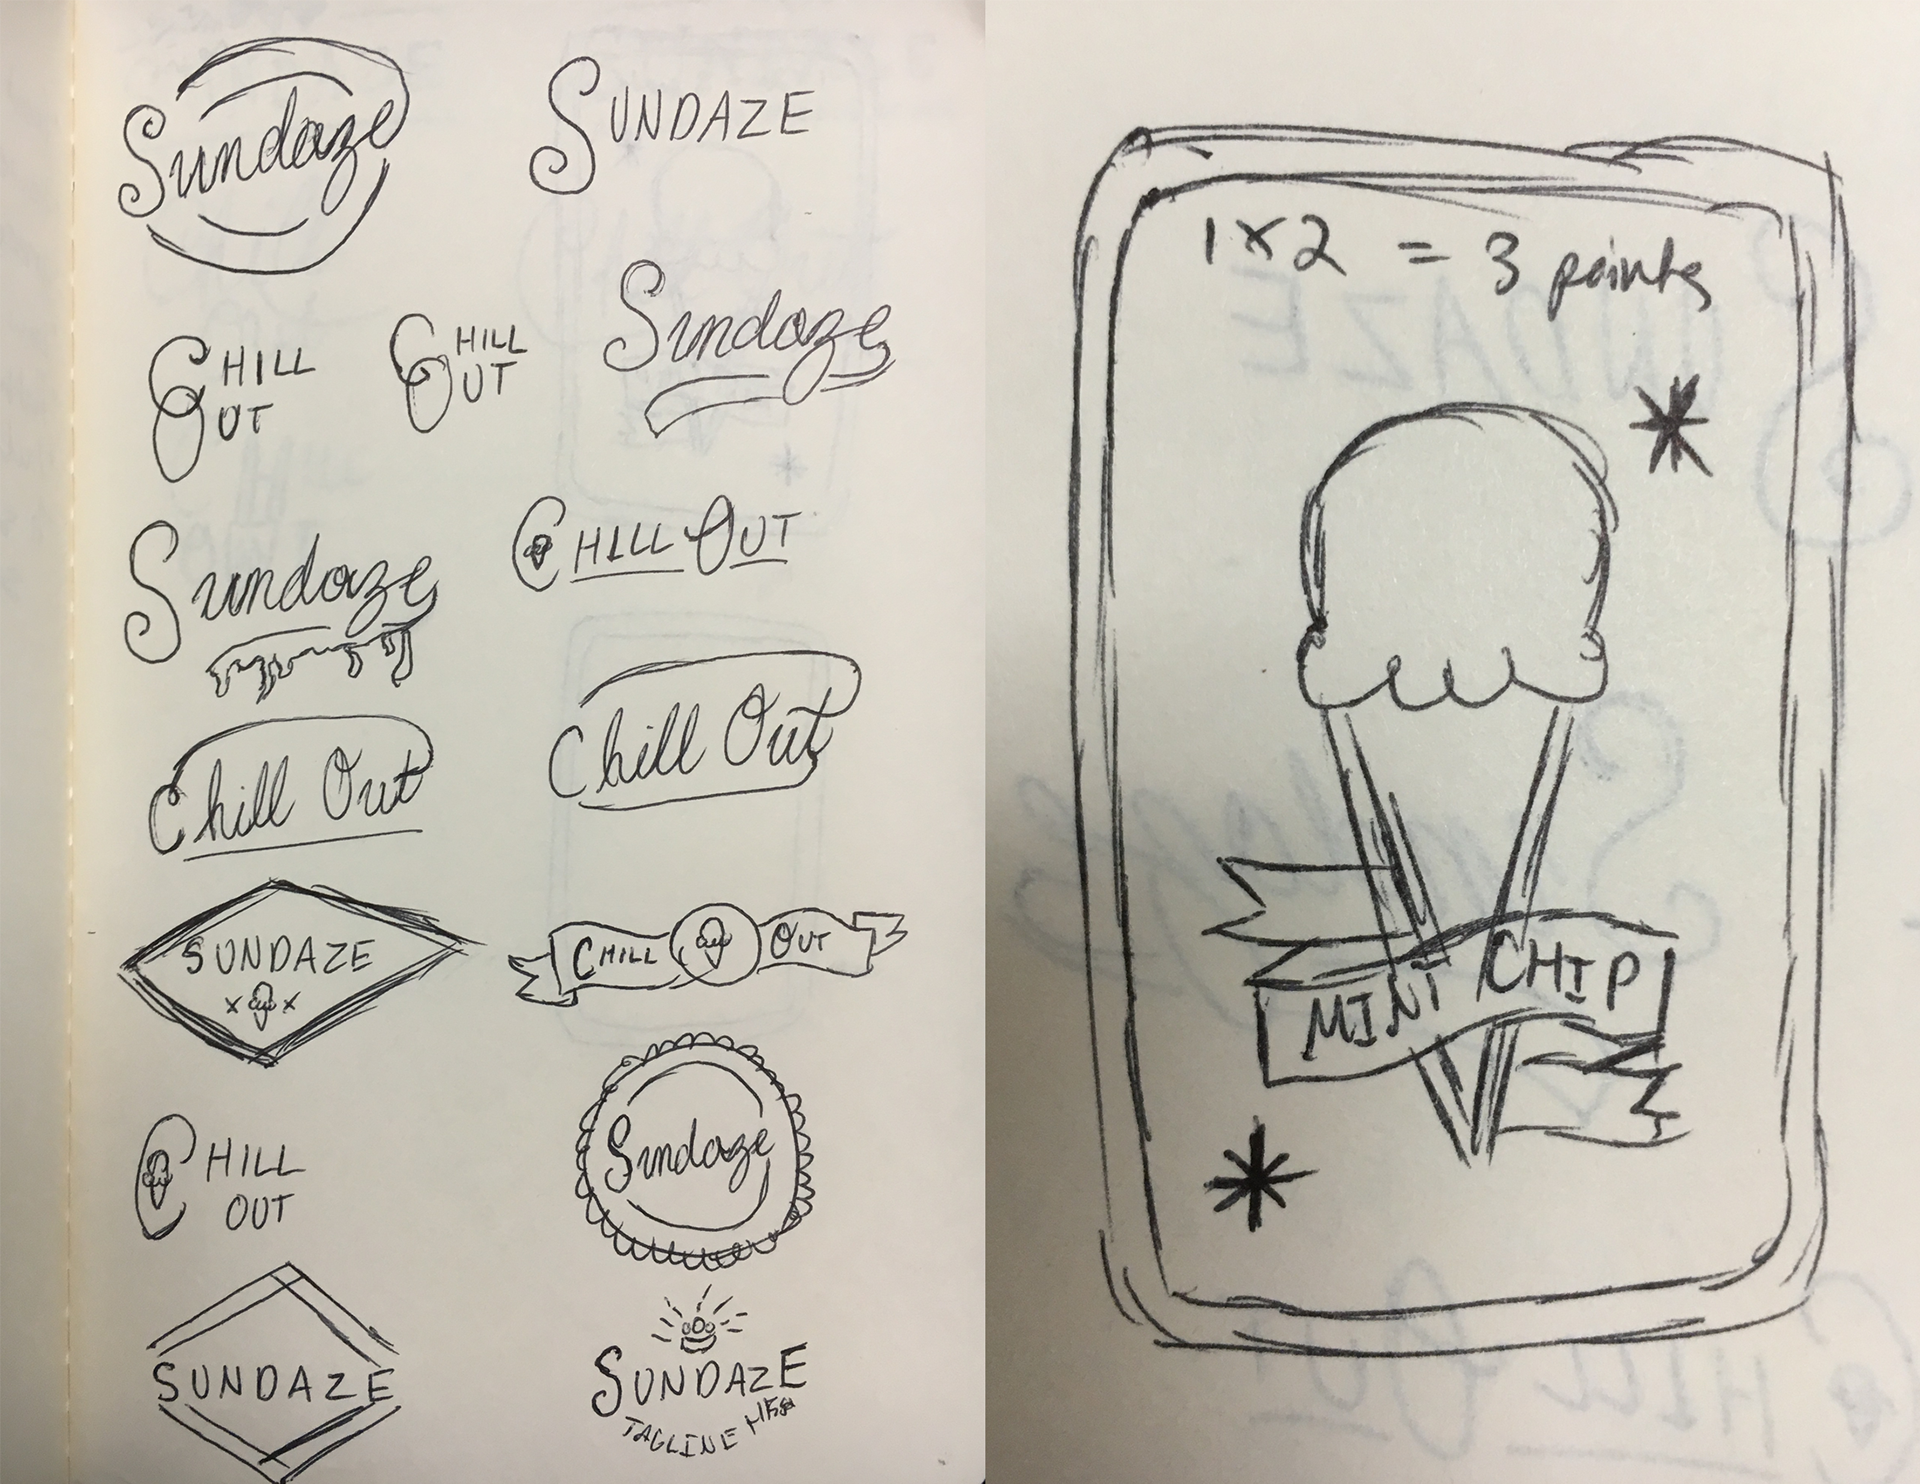 Sundaze
SUNDAZE
CHILL
OUT
CHILL
OUT
Sundaze
Sundaze
CHILL OUT
Chill Out
Chill Out
SUNDAZE
CHILL OUT
CHILL
OUT
Sundaze
SUNDAZE
SUNDAZE
TAGLINE
1x2 = 3 points
MINT CHIP